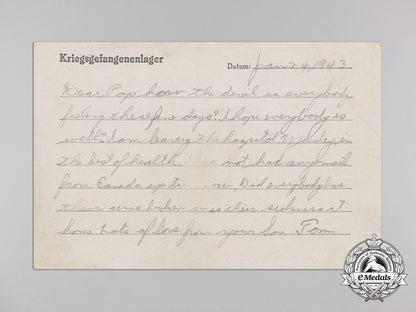 Kriegsgefangenenlager
Datum: Jan 24, 1943
Dear Pop how the devil is everybody
feeling these fine days? I hope everybody is
well? I am leaving the hospital Monday in
the best of health. I have not had any mail
from Canada up to now, Did everybody have
their arms broken or is their sickness at
home lots of love from your Son Tom
eMedals